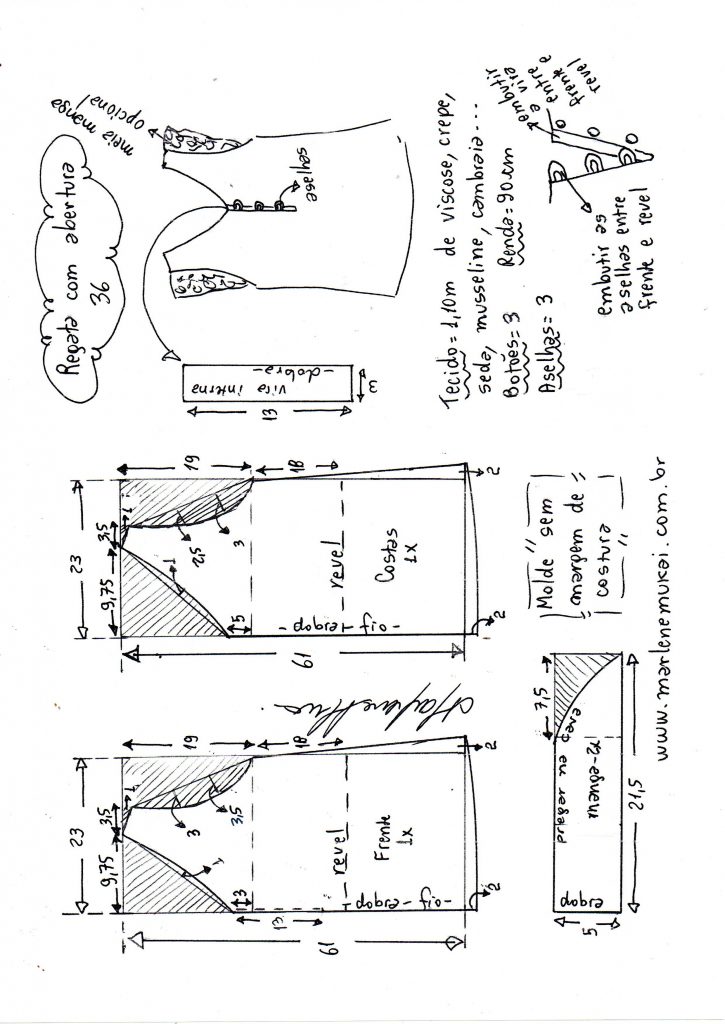 Regata com abertura
36
meia manga
opcional
aselhas
vira interna
-dobra-
13
3
Tecido=1,10m de viscose, crepe,
seda, musseline, cambraia...
Botões=3 Renda=90cm
Aselhas=3
embutir
a vira
entre
frente e
revel
embutir as
aselhas entre
frente e revel
23
9,75
3,5
1
19
18
1
2,5
3
5
revel
Costas
1x
-dobra-fio-
61
2
2
Molde sem
margem de
costura
www.marlenemukai.com.br
23
9,75
3,5
1
19
18
1
3
3,5
3
13
revel
Frente
1x
-dobra-fio-
61
2
2
7,5
pregar na cava
manga-2x
dobra
5
21,5